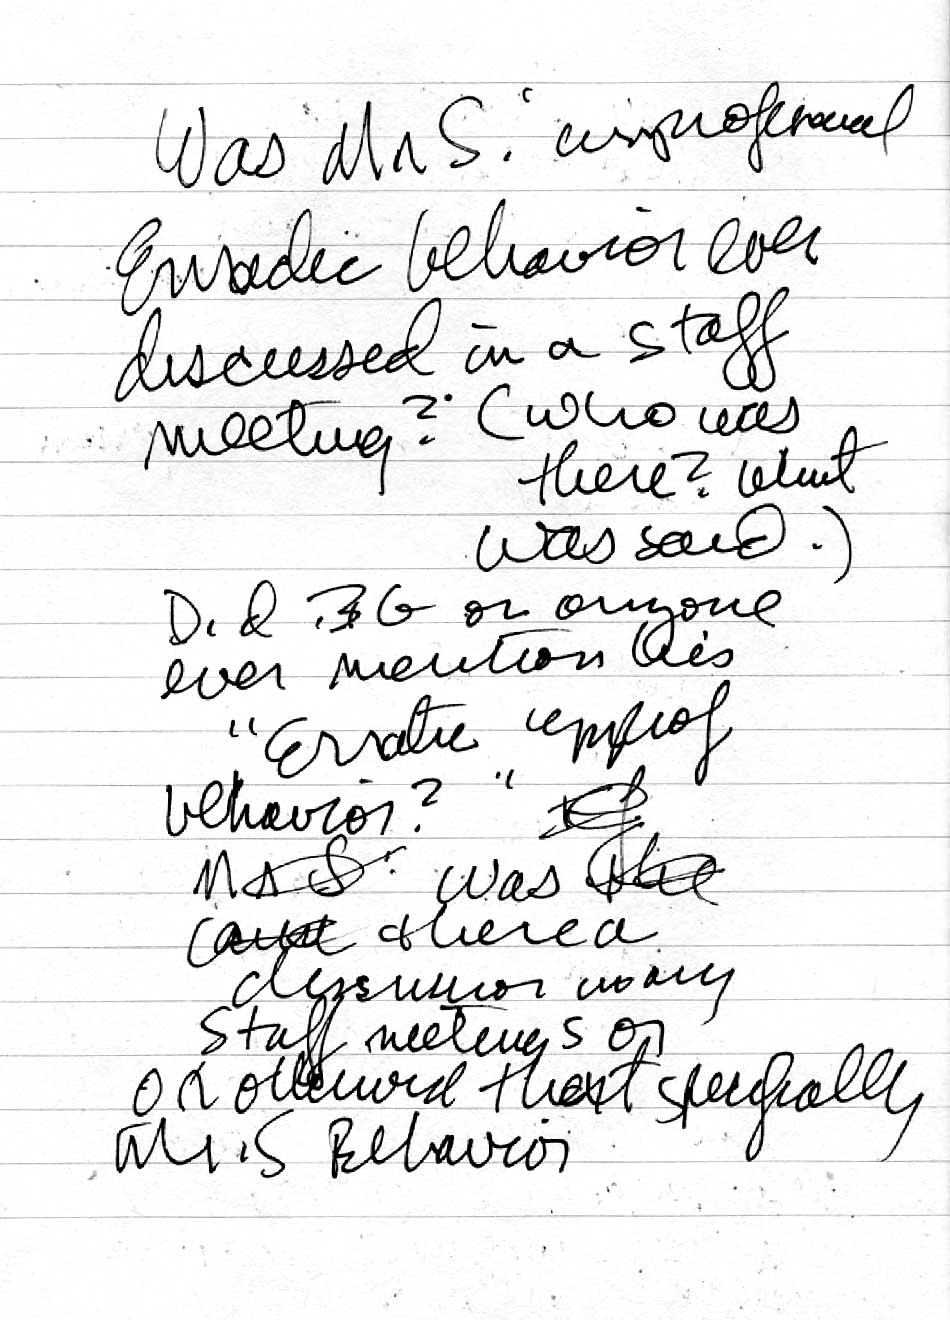 Was Mr S. unprofessional
Erradic behavior ever
discussed in a staff
meeting? (who was
there? what
was said.)
Did BG or anyone
ever mention his
"Erratic unprof
behavior?"
Mr S. was the
there a
discussion in any
staff meetings or
or otherwise that specifically
Mr. S Behavior